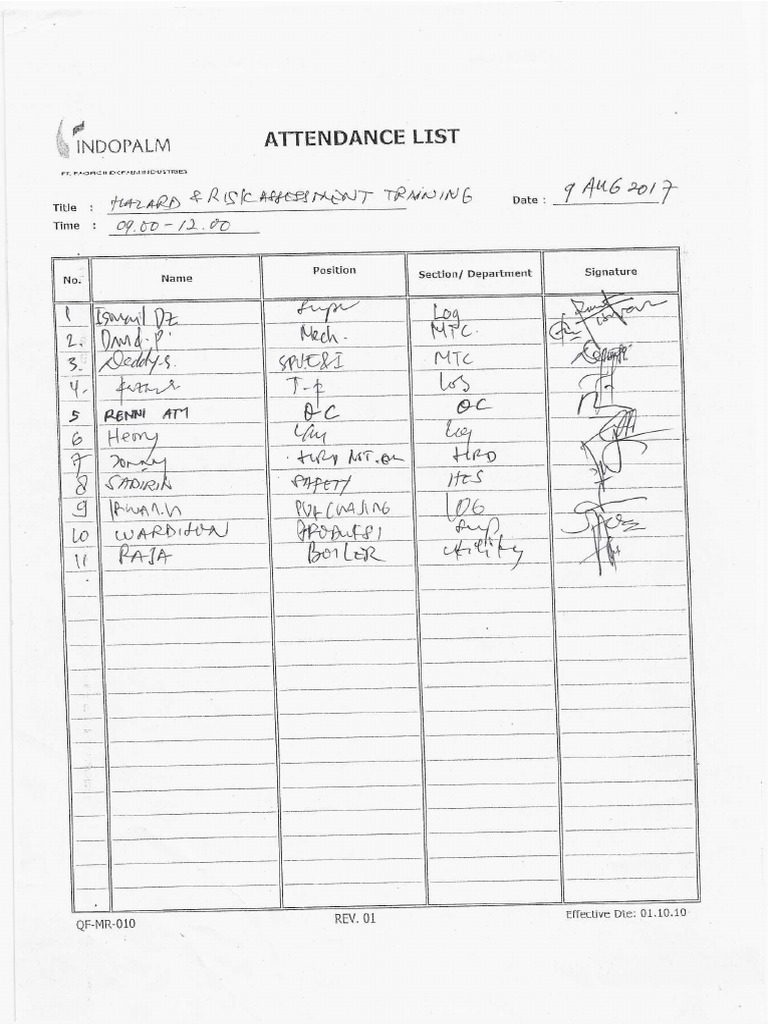 INDOPALM
ATTENDANCE LIST
PT. PACIFIC INDOPALM INDUSTRIES
Title : HAZARD & RISK ASSESSMENT TRAINING Date : 9 AUG 2017
Time : 09.00 - 12.00
No. Name Position Section/ Department Signature
1 Ismail DZ Log
2. Mech. MTC.
3. Deddy.S. SPV.E&I MTC
4. T-p Log
5 RENNI ATM QC QC
6 Henry Log
7 HRD
8 SADIRIN SAFETY HES
9 IRWAN.H PURCHASING LOG
10 WARDISON PRODUKSI
11 RAJA BOILER Utility
QF-MR-010 REV. 01 Effective Dte: 01.10.10